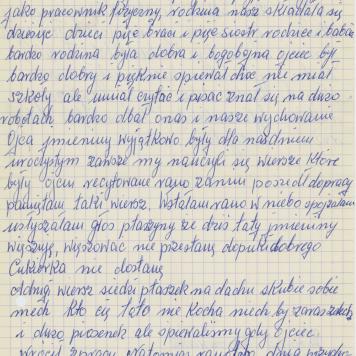 jako pracownik fizyczny, rodzina nasz składała się
dziesięć dzieci pięc braci i pięc siostr rodzice i babcia
bardzo rodzina była dobra i bogobojna ojciec był
bardzo dobry i pięknie spiewał choc nie miał
szkoły ale umiał czytać i pisac znał się na dużo
robotach bardzo dbał o nas i nasze wychowanie
Ojca imieniny wyjątkowo były dla nas dniem
uroczystym zawsze my nauczyli się wiersze które
były ojcu recytowane rano zanim poszedł do pracy
pamiętam taki wiersz, Wstałam rano w niebo spojrzałam
usłyszałam głos ptaszyny że dziś taty imieniny
więszuję, więszować nie przestanę dopuki dobrego
Cukierka nie dostanę
oldrug wiersz siedzi ptaszek na dachu skubie sobie
mech kto cię tato nie kocha niech by zaraz zdech
i dużo piosenek ale spiewaliśmy gdy ojciec
wrócił z pracy Natomias